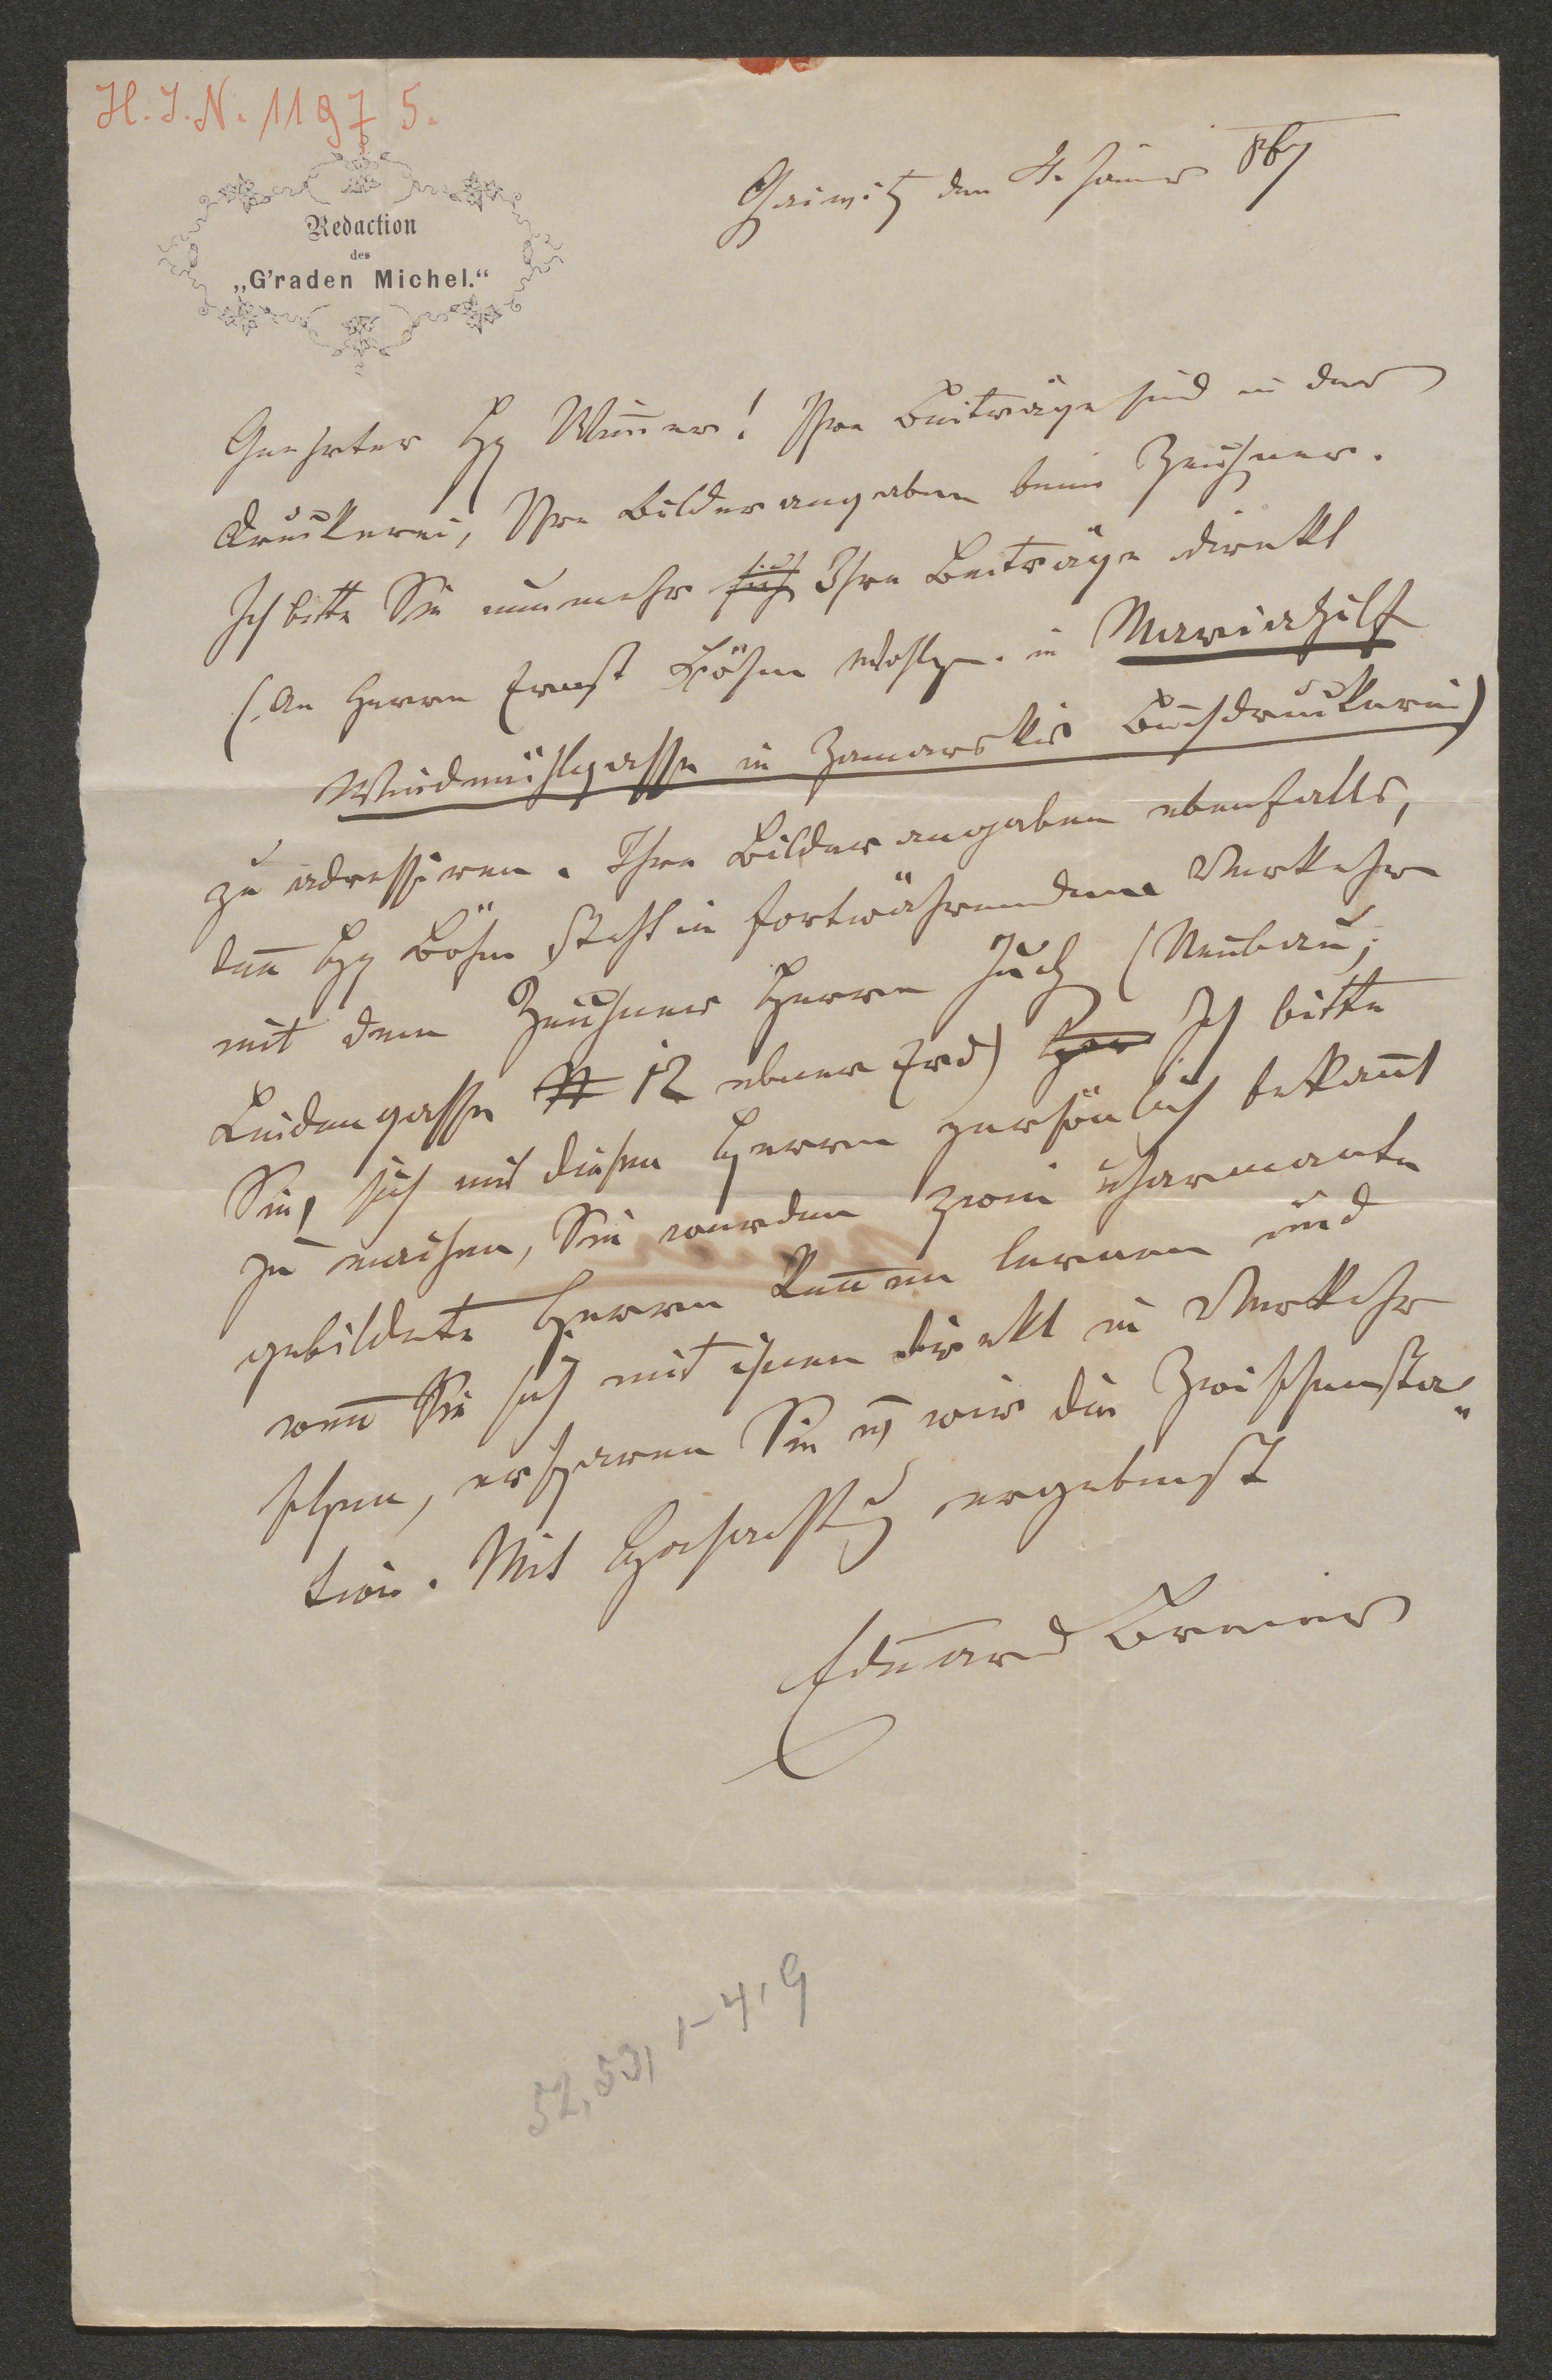 H. I. N. 11975.
Redaction
des
„G'raden Michel.“
Gaiwitz den 4. Jäner 867
Geehrter H. Wimmer! Ihre Beiträge sind in der
Druckerei, Ihre Bilderangaben beim Zeichner.
Ich bitte Sie nunmehr sich Ihre Beiträge direkt
(An Herrn Ernst Böhm Wohlg. in Mariahilf
Windmühlgasse in Zamarskis Buchdruckerei)
zu adressiren. Ihre Bilderangaben ebenfalls,
den̄ H. Böhm steht in fortwährendem Verkehr
mit dem Zeichner Herrn Juch (Neubau,
Lindengasse 12 ebner Erd) Ich bitte
Sie, sich mit diesen Herren persönlich bekan̄t
zu machen, Sie werden zwei scharmante
gebildete Herren ken̄en lernen und
wen̄ Sie sich mit ihnen direkt in Verkehr
setzen, ersparen Sie u wir die Zwischensta-
tion. Mit Hochachtg ergebenst
Eduard Breier
52, 53, 1-4, 9